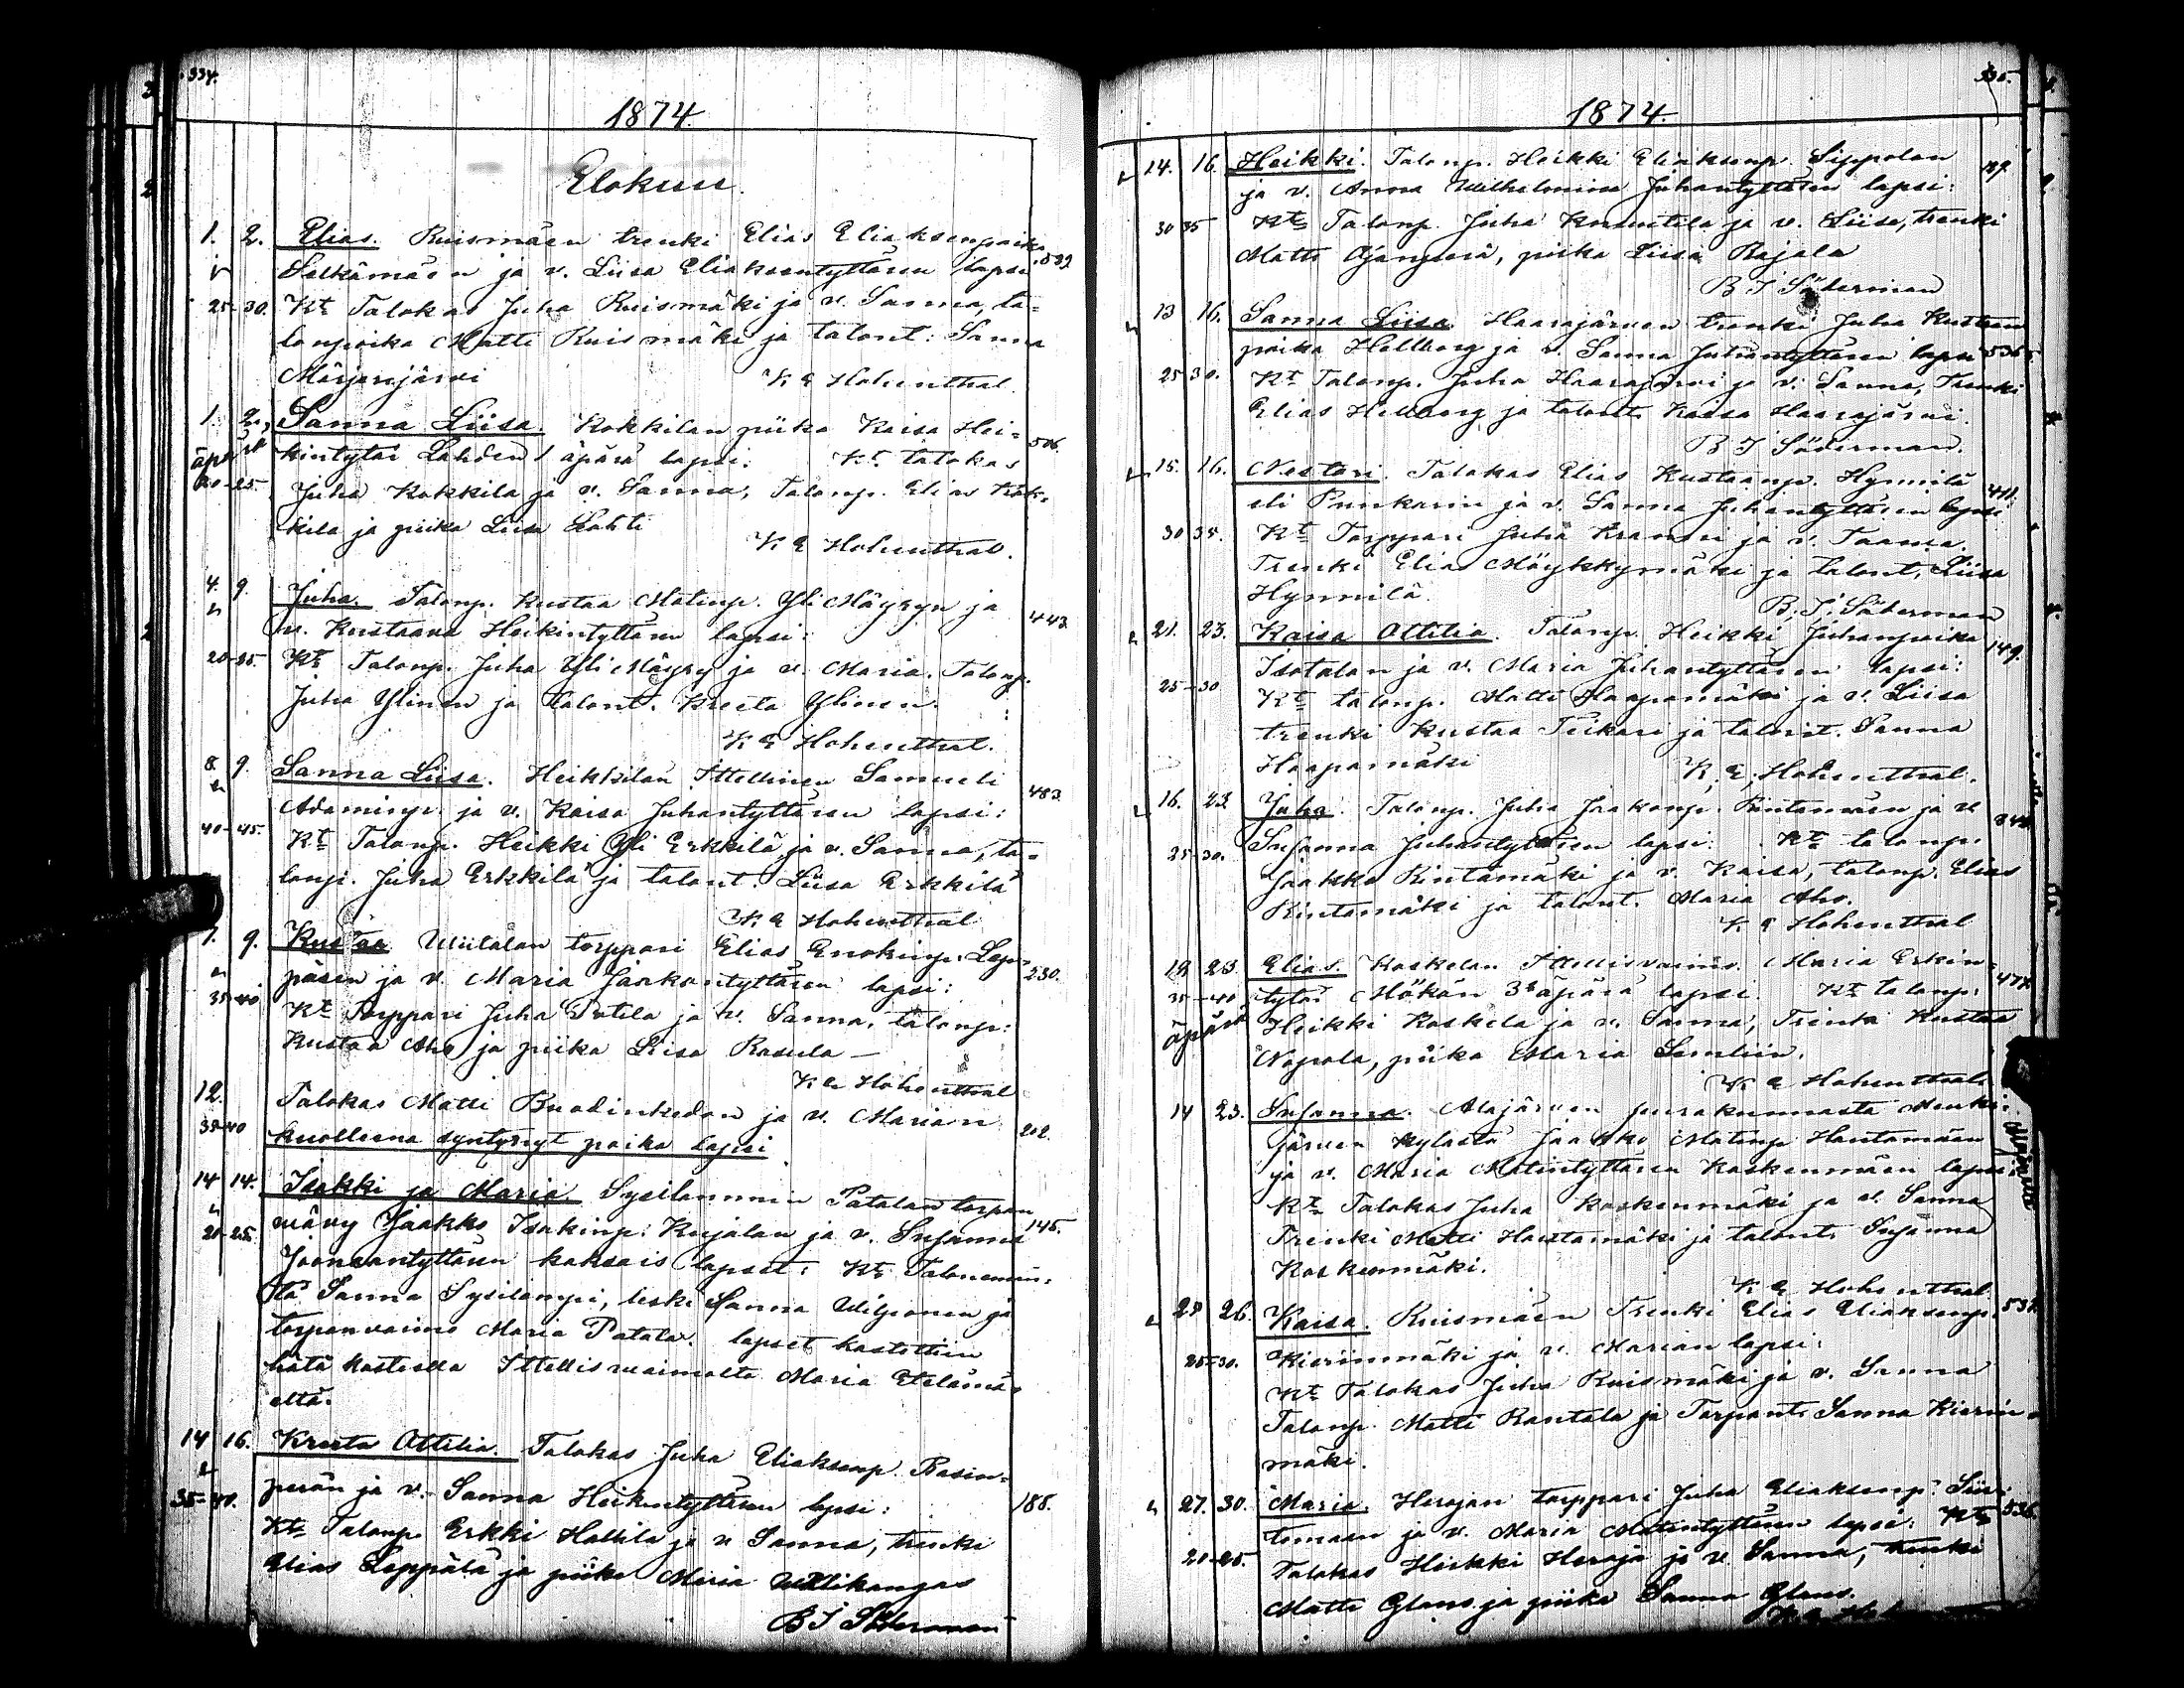 334.
1874.
Elokuu.
1. 2. Elias. Ruismäen trenki Elias Eliaksenpoika 532
Salkämäen ja v. Liisa Eliaksentyttären lapsi
25-30. Kt Talokas Juha Ruismäki ja v. Sanna, ta-
lonpoika Matti Ruismäki ja talont: Sanna
Märjenjärvi K E Hohenthal
1. 2. Sanna Liisa. Kokkilan piika Kaisa Hei- 506.
äpärä kintytär Lahden 1 äpärä lapsi. Kt talokas
20-25. Juha Kokkila ja v. Sanna, Talonp. Elias Kok-
kila ja piika Liisa Lahti
K E Hohenthal.
4. 9. Juha. Talonp. Kustaa Matinp. Yli Mäyryn ja 443
v. Kustaava Heikintyttären lapsi:
20-25. Kt Talonp. Juha Yli Mäyry ja v. Maria. Talonp.
Juha Ylinen ja talont. Kreeta Ylinen.
K E Hohenthal.
8. 9. Sanna Liisa. Heikkilän Ittellinen Samueli 483
Adaminp. ja v. Kaisa Juhantyttären lapsi:
40-45. Kt Talonp. Heikki Yli Erkkilä ja v. Sanna, ta-
lonp. Juha Erkkilä ja talont. Liisa Erkkilä
K E Hohenthal
7. 9. Kustaa Wiitalan torppari Elias Enokinp. Lep- 230.
päsen ja v. Maria Jaakontyttären lapsi:
35-40 Kt Torppari Juha Patela ja v. Sanna, talonp:
Kustaa Aho ja piika Liisa Rasula —
K E Hohenthal
12. Talokas Matti Buadinkedon ja v. Marian 202.
35-40 kuolleena syntynyt poika lapsi
14 14. Isakki ja Maria Sysilammin Patalan torpan
vävy Jaakko Isakinp: Kujalan ja v. Susanna 145.
20-25. Joonaantyttären kaksois lapset: Kt Talonemän-
tä Sanna Sysilampi, leski Sanna Wilponen ja
torpanvaimo Maria Patala. lapset kastettiin
hätä kasteella Ittellis vaimolta Maria Etelämä-
eltä.
14 16. Kreeta Ottilia. Talokas Juha Eliaksenp. Rasin-
perän ja v. Sanna Heikintyttären lapsi: 188.
35-40. Kt Talonp. Erkki Hallila ja v Sanna, trenki
Elias Leppälä ja piika Maria Wallikangas
B J Söderman
335.
1874.
14. 16. Heikki. Talonp. Heikki Eliaksenp. Sippolan
ja v. Anna Wilhelmina Juhantyttären lapsi:
30 35 Kt Talonp. Juha Knuutila ja v. Liisa, trenki
Matti Ojanperä, piika Liisa Rajala
B J Söderman
13 16. Sanna Liisa. Haarajärven trenki Juha Kustaan
poika Hellborg ja v. Sanna Juhantyttären lapsi 536.
25 30. Kt Talonp. Juha Haarajärvi ja v. Sanna, Trenki
Elias Hellborg ja talont. Kaisa Haarajärvi.
B J Söderman.
15. 16. Nestori. Talokas Elias Kustaanp. Hynnilä 411.
eli Punkarin ja v. Sanna Juhantyttären lapsi
30 35. Kt Torppari Juha Kranni ja v. Taava.
Trenki Elias Möykkymäki ja talont. Liisa
Hynnilä. B. J. Söderman
21. 23. Kaisa Ottilia. Talonp. Heikki Juhanpoika 149.
Isotalon ja v. Maria Juhantyttären lapsi:
25-30 Kt talonp. Matti Haapamäki ja v. Liisa
trenki Kustaa Teikari ja talont. Sanna
Haapamäki K. E. Hohenthal.
16. 23. Juha. Talonp. Juha Jaakonp. Rintamäen ja v.
Susanna Juhantyttären lapsi. Kt talonp.
25-30. Jaakko Rintamäki ja v. Kaisa, talonp. Elias
Rintamäki ja talont. Maria Aho.
K E Hohenthal
19 23 Elias. Koskelan Ittellisvaimo. Maria Erkin- 477.
35-40 tytär Mökän 3s äpärä lapsi. Kt talonp.
äpärä Heikki Koskela ja v. Sanna, Trenki Kustaa
Napola, piika Maria Semliin.
K E Hohenthal
14 23. Susanna. Alajärven seurakunnasta Menki-
järven kylästä Jaakko Matinp Hautamäen
ja v. Maria Matintyttären Koskenmäen lapsi
Kt. Talokas Juha Koskenmäki ja v. Sanna
Trenki Matti Hautamäki ja talont. Susanna
Koskenmäki.
K E Hohenthal
24 26. Kaisa. Ruismäen Trenki Elias Eliaksenp. 532
25-30. Kierinmäki ja v. Marian lapsi.
Kt Talokas Juha Ruismäki ja v. Sanna
Talonp. Matti Rantala ja Torpant. Sanna Kierin-
mäki.
27. 30. Maria. Herajan torppari Juha Eliaksenp. Sii- 536.
tomaan ja v. Maria Matintyttären lapsi: Kt
20-25. Talokas Heikki Heraja ja v Sanna, trenki
Matti Glans ja piika Sanna Glans.